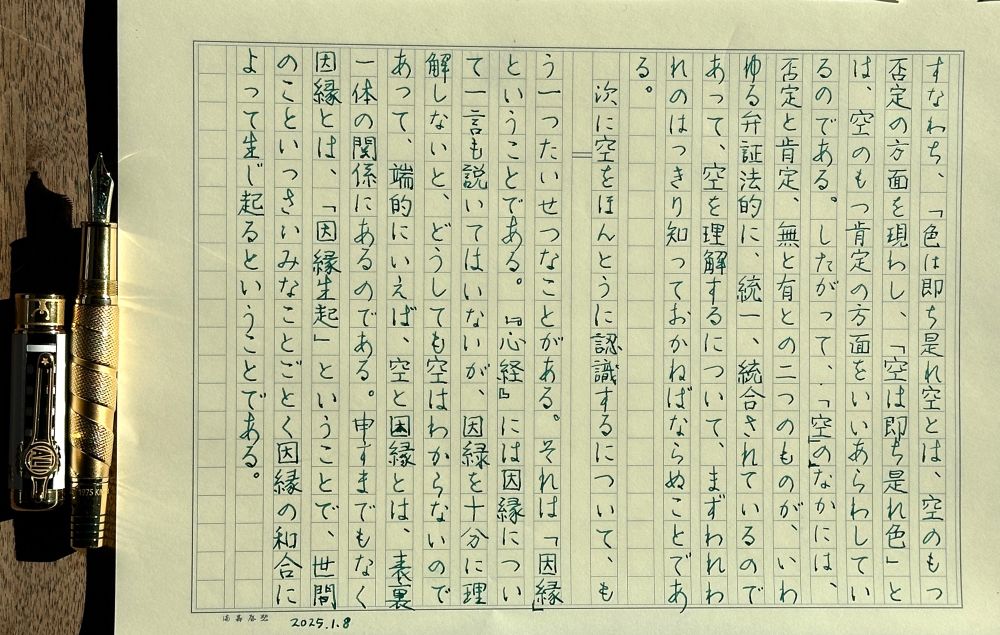 すなわち、「色は即ち是れ空とは、空のもつ
否定の方面を現わし、「空は即ち是れ色」と
は、空のもつ肯定の方面をいいあらわしてい
るのである。したがって、「空」のなかには、
否定と肯定、無と有との二つのものが、いわ
ゆる弁証法的に、統一、統合されているので
あって、空を理解するについて、まずわれわ
れのはっきり知っておかねばならぬことであ
る。
次に空をほんとうに認識するについて、も
う一つたいせつなことがある。それは「因縁」
ということである。『心経』には因縁につい
て一言も説いてはいないが、因縁を十分に理
解しないと、どうしても空はわからないので
あって、端的にいえば、空と因縁とは、表裏
一体の関係にあるのである。申すまでもなく
因縁とは、「因縁生起」ということで、世間
のこといっさいみなことごとく因縁の和合に
よって生じ起るということである。
2025.1.8
1975